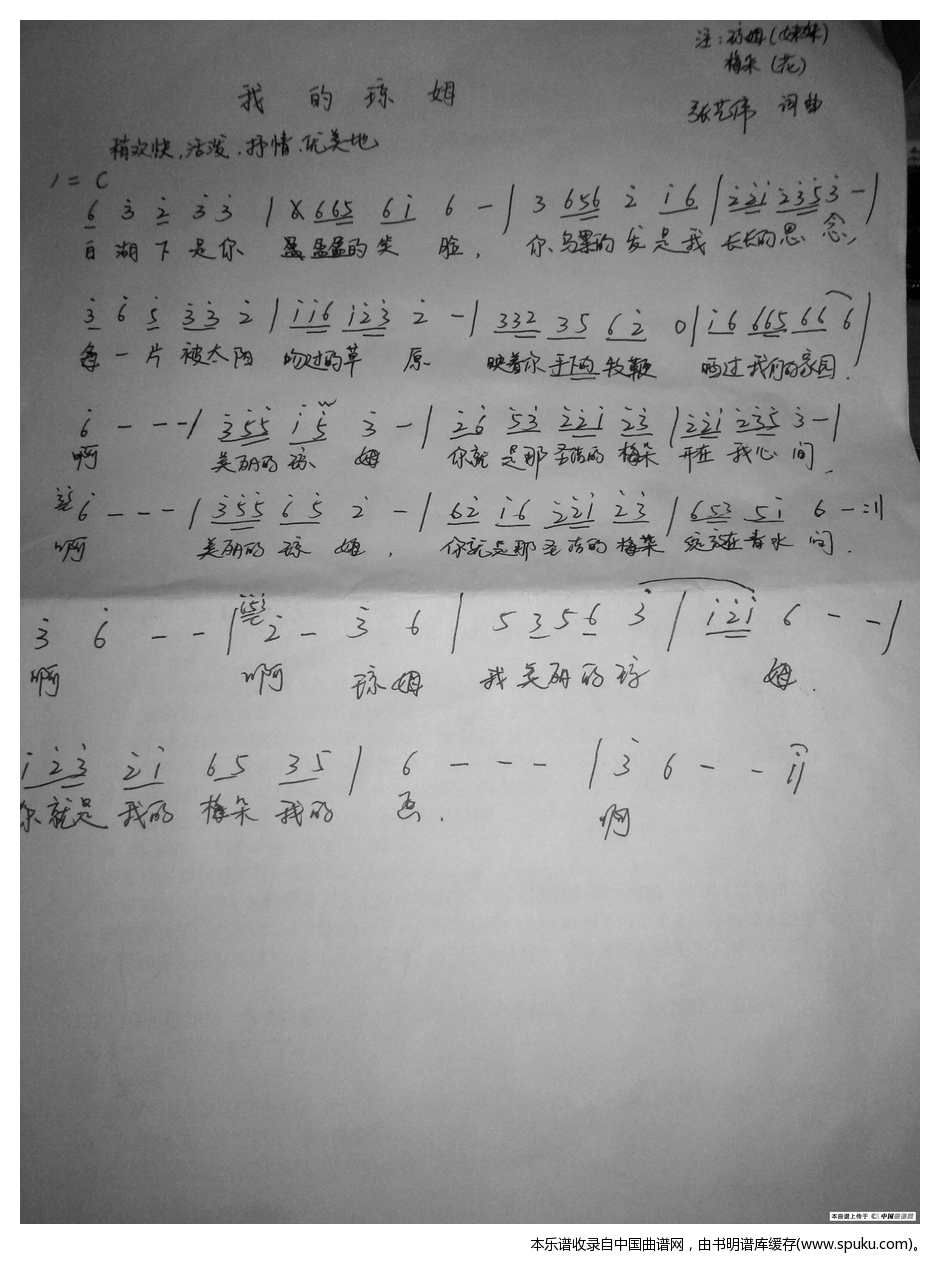 注:琼姆(妹妹)
梅朵(花)
我的琼姆
张艺伟 词曲
稍欢快、活泼、抒情、优美地
1=C
6 3̇ 2̇ 3̇ 3̇ | X 665 6i̇ 6 - | 3 656 2̇ i̇6 | 2̇2̇i̇ 2̇3̇5̇ 3̇ - |
白湖下是你 盈盈的笑脸, 你乌黑的发是我长长的思念,
3̇ 6 5 3̇3̇ 2̇ | i̇i̇6 i̇2̇3̇ 2̇ - | 332 35 62̇ 0 | i̇6 665 66 6 |
每一片被太阳吻过的草原 映着你手下的牧鞭 晒过我们的家园.
6 - - - | 3̇5̇5̇ i̇5̇ 3̇ - | 2̇6 5̇3̇ 2̇2̇i̇ 2̇3̇ | 2̇2̇i̇ 2̇3̇5̇ 3̇ - |
啊 美丽的琼姆 你就是那圣洁的梅朵 开在我心间,
6 - - - | 3̇5̇5̇ 6 5 2̇ - | 62̇ i̇6 2̇2̇i̇ 2̇3̇ | 653 5i̇ 6 - :||
啊 美丽的琼姆, 你就是那圣洁的梅朵 春水间.
3̇ 6 - - | 2̇ - 3̇ 6 | 5 3 5 6 3̇ | i̇2̇i̇ 6 - - |
啊 啊 琼姆 我美丽的琼姆.
i̇2̇3̇ 2̇i̇ 65 35 | 6 - - - | 3̇ 6 - - i̇ ||
你就是我的梅朵我的 啊
本曲谱上传于 中国曲谱网
本乐谱收录自中国曲谱网，由书明谱库缓存(www.spuku.com)。